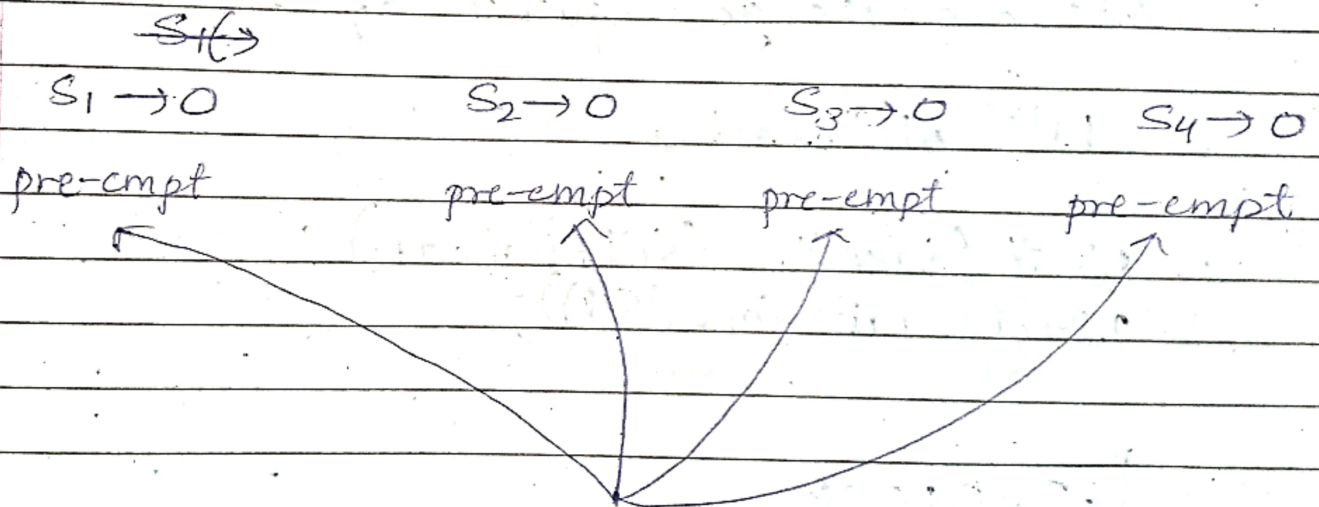 S1 → 0 S2 → 0 S3 → 0 S4 → 0
pre-empt pre-empt pre-empt pre-empt